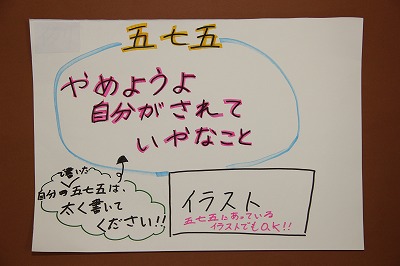 五七五
やめようよ
自分がされて
いやなこと
で書いた
自分の五七五は、
太く書いて
ください!!
イラスト
五七五にあっている
イラストでもOK!!